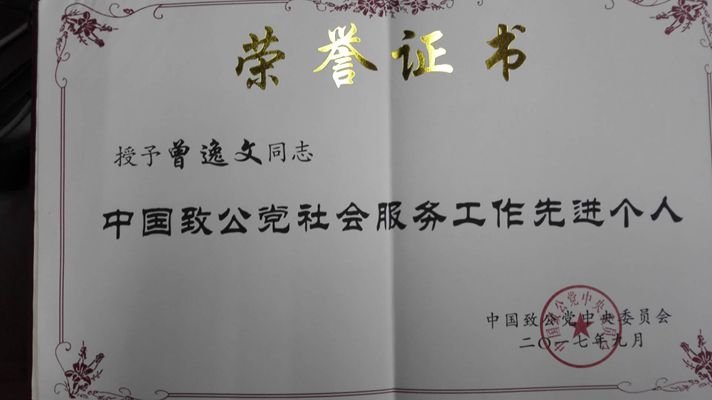 荣誉证书
授予曾逸文同志
中国致公党社会服务工作先进个人
中国致公党中央委员会
二〇一七年九月
中国致公党中央委员会